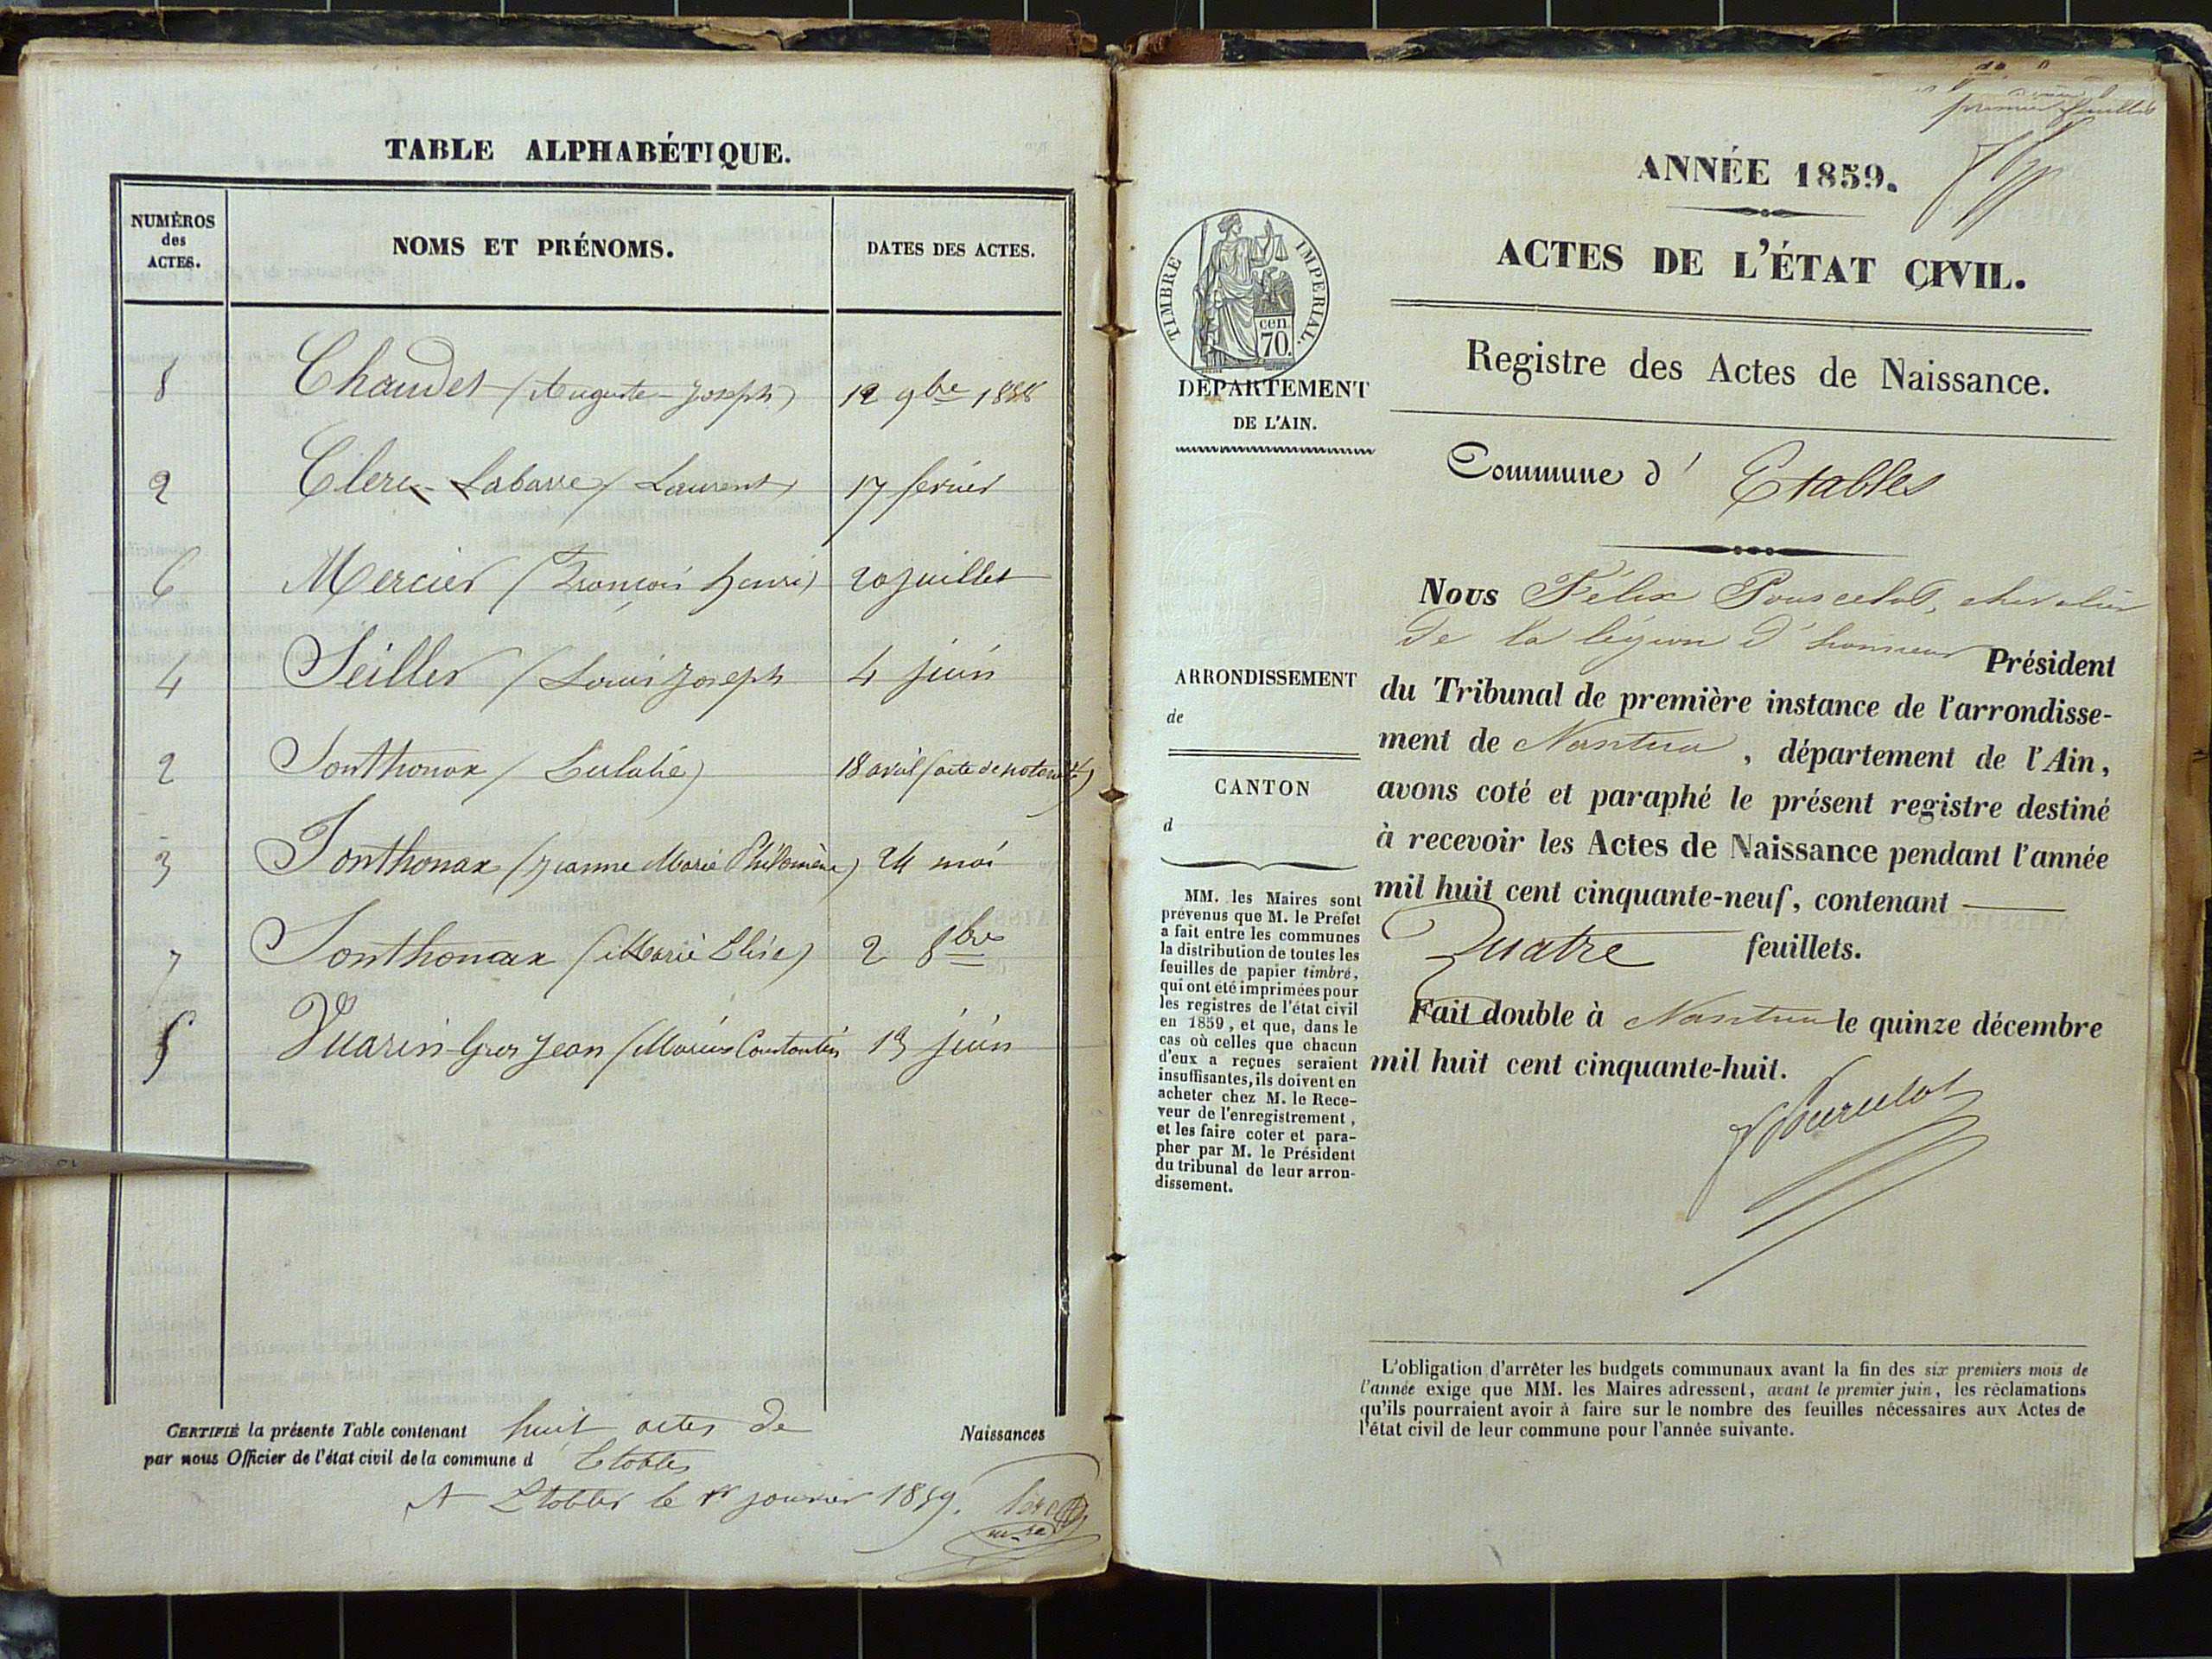 TABLE ALPHABÉTIQUE.
NUMÉROS
des
ACTES.
NOMS ET PRÉNOMS.
DATES DES ACTES.
8 Chaudet (Auguste-Joseph) 12 9bre 1858
2 Clerc-Labarre (Laurent) 17 fevrier
6 Mercier (François henri) 20 juillet
4 Seiller (Louis Joseph 4 juin
2 Sonthonax (Eulalie) 18 avril (acte de
3 Sonthonax (Jeanne Marie Philomène) 24 mai
7 Sonthonax (Marie Elise) 2 8bre
5 Vuarin-Gros Jean (Marius Constantin 13 juin
CERTIFIÉ la présente Table contenant huit actes de Naissances
par nous Officier de l'état civil de la commune d Etables
A Etables le 1er janvier 1859.
premier feuillet
ANNÉE 1859.
ACTES DE L'ÉTAT CIVIL.
Registre des Actes de Naissance.
TIMBRE IMPERIAL.
cen.
70.
DÉPARTEMENT
DE L'AIN.
Commune d' Etables
ARRONDISSEMENT
de
CANTON
d
MM. les Maires sont
prévenus que M. le Préfet
a fait entre les communes
la distribution de toutes les
feuilles de papier timbré,
qui ont été imprimées pour
les registres de l'état civil
en 1859, et que, dans le
cas où celles que chacun
d'eux a reçues seraient
insuffisantes, ils doivent en
acheter chez M. le Rece-
veur de l'enregistrement,
et les faire coter et para-
pher par M. le Président
du tribunal de leur arron-
dissement.
Nous Félix Pourcelot, chevalier
de la légion d'honneur Président
du Tribunal de première instance de l'arrondisse-
ment de Nantua, département de l'Ain,
avons coté et paraphé le présent registre destiné
à recevoir les Actes de Naissance pendant l'année
mil huit cent cinquante-neuf, contenant
Quatre feuillets.
Fait double à Nantua le quinze décembre
mil huit cent cinquante-huit.
L'obligation d'arrêter les budgets communaux avant la fin des six premiers mois de
l'année exige que MM. les Maires adressent, avant le premier juin, les réclamations
qu'ils pourraient avoir à faire sur le nombre des feuilles nécessaires aux Actes de
l'état civil de leur commune pour l'année suivante.